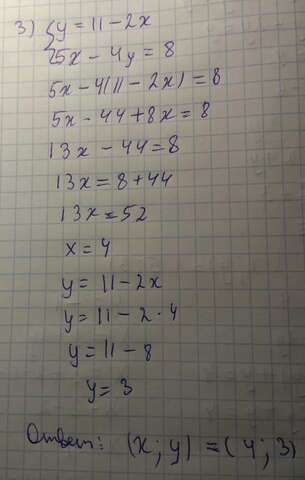 3) {y = 11 - 2x
5x - 4y = 8
5x - 4(11 - 2x) = 8
5x - 44 + 8x = 8
13x - 44 = 8
13x = 8 + 44
13x = 52
x = 4
y = 11 - 2x
y = 11 - 2 · 4
y = 11 - 8
y = 3
Ответ: (x; y) = (4; 3)